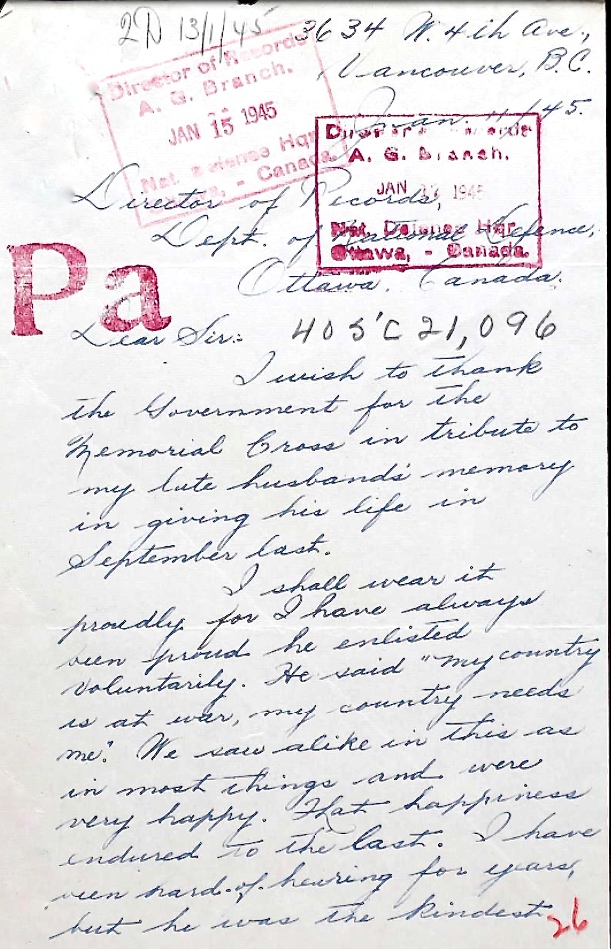 2D 13/1/45
3634 W. 4th Ave.,
Vancouver, B.C.
Jan. 11/45.
Director of Records
A. G. Branch.
JAN 15 1945
Nat. Defence Hqr
- Canada.
A. G. Branch.
JAN 1945
Nat. Defence Hqr.
Ottawa, - Canada.
Director of Records,
Dept. of National Defence,
Ottawa, Canada.
Pa
Dear Sir:
405'C 21,096
I wish to thank
the Government for the
Memorial Cross in tribute to
my late husband's memory
in giving his life in
September last.
I shall wear it
proudly for I have always
been proud he enlisted
voluntarily. He said "my country
is at war, my country needs
me." We saw alike in this as
in most things and were
very happy. That happiness
endured to the last. I have
been hard-of-hearing for years,
but he was the kindest
26